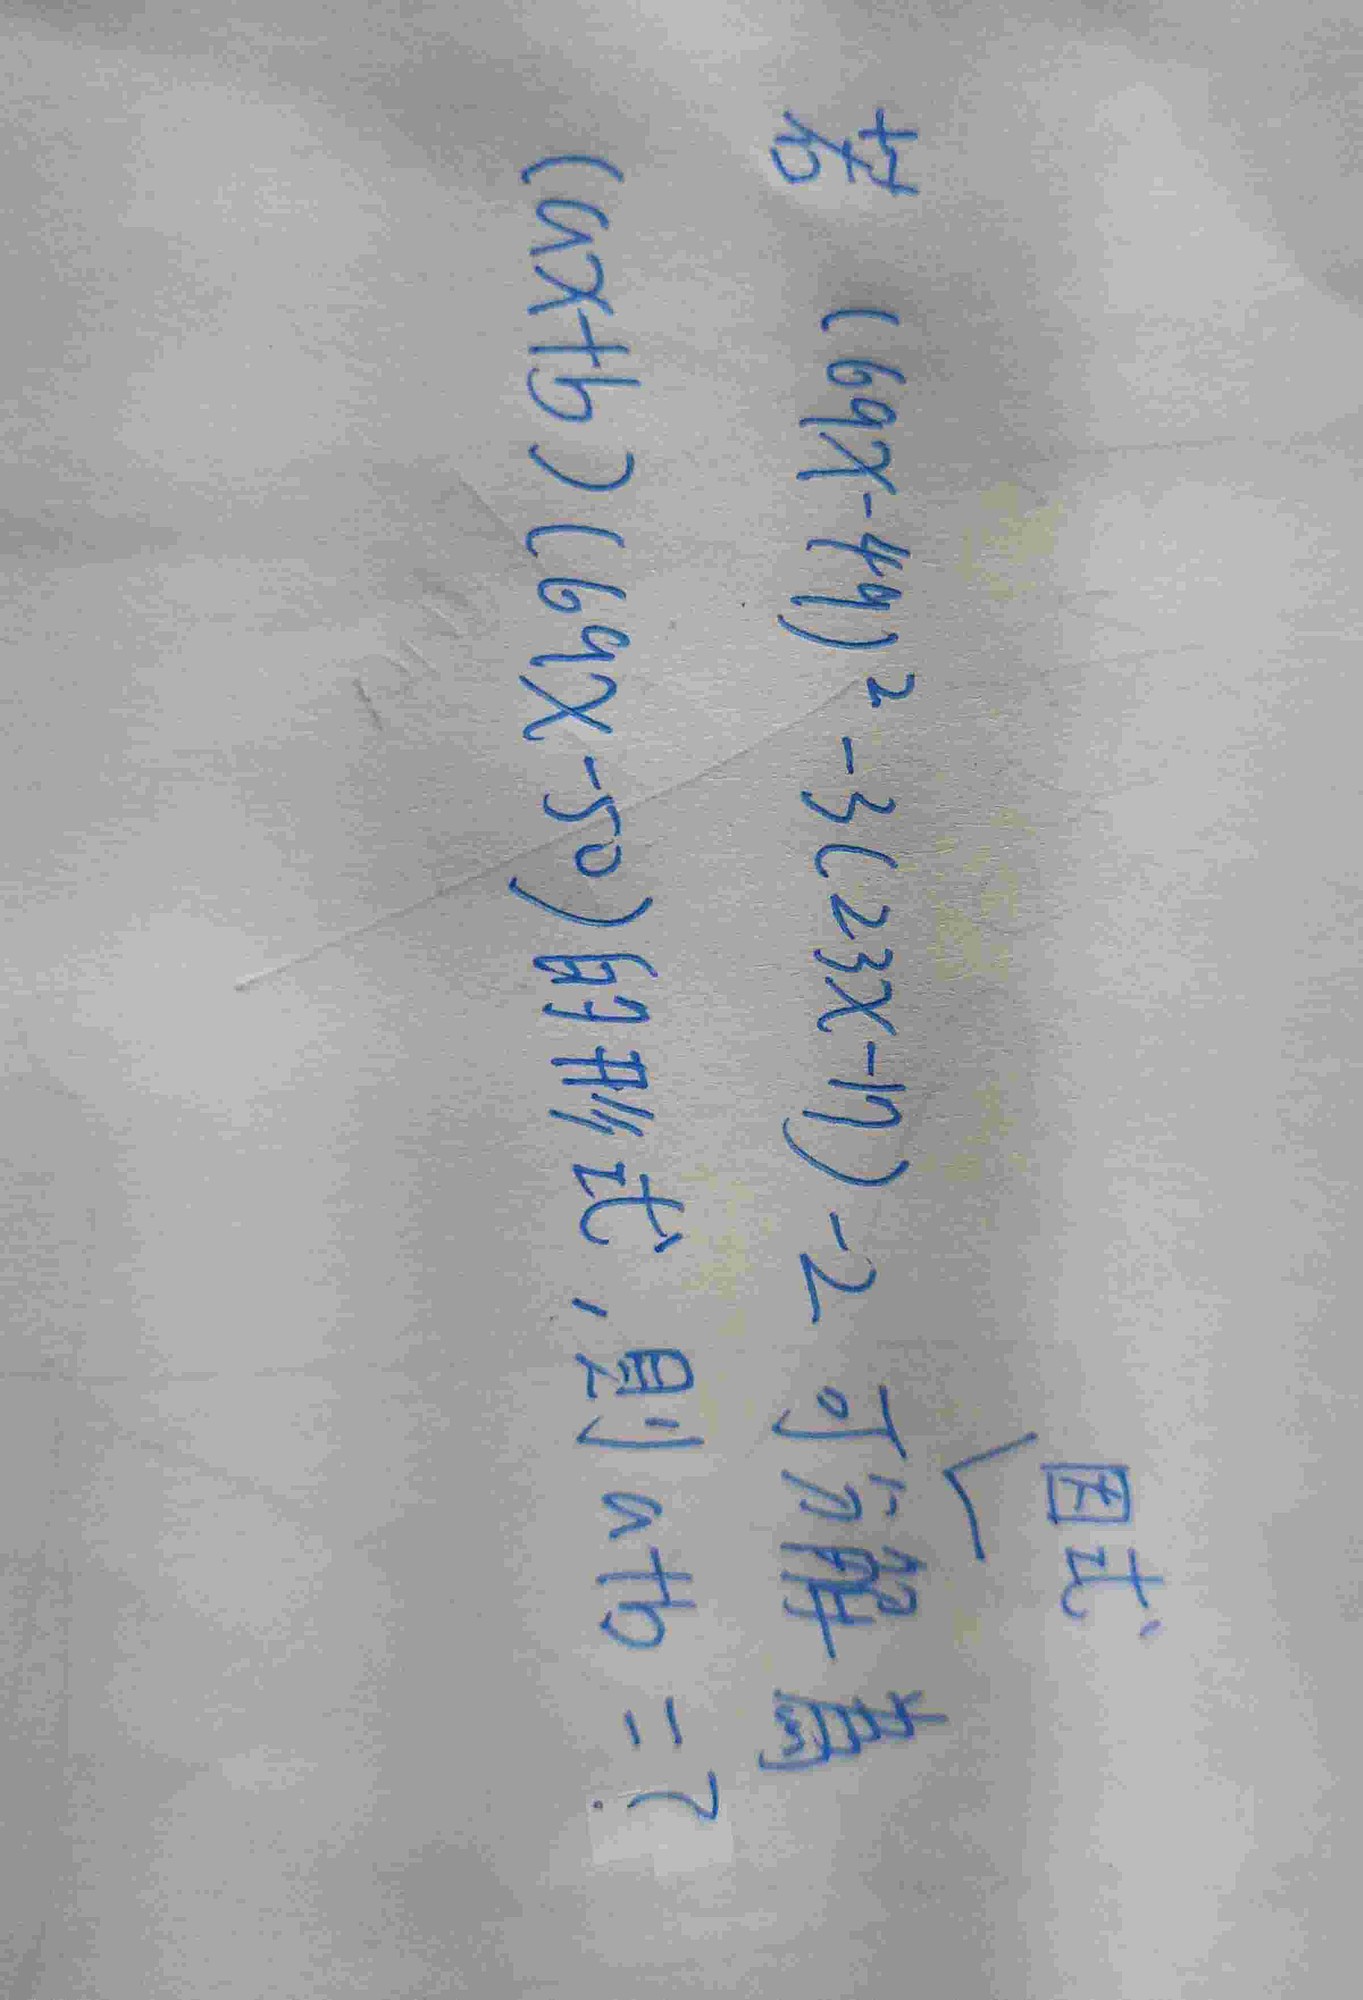 因式
若 (69x-49)² -3(23x-17) -2 可分解為
(ax+b)(69x-50)的形式,則a+b=?